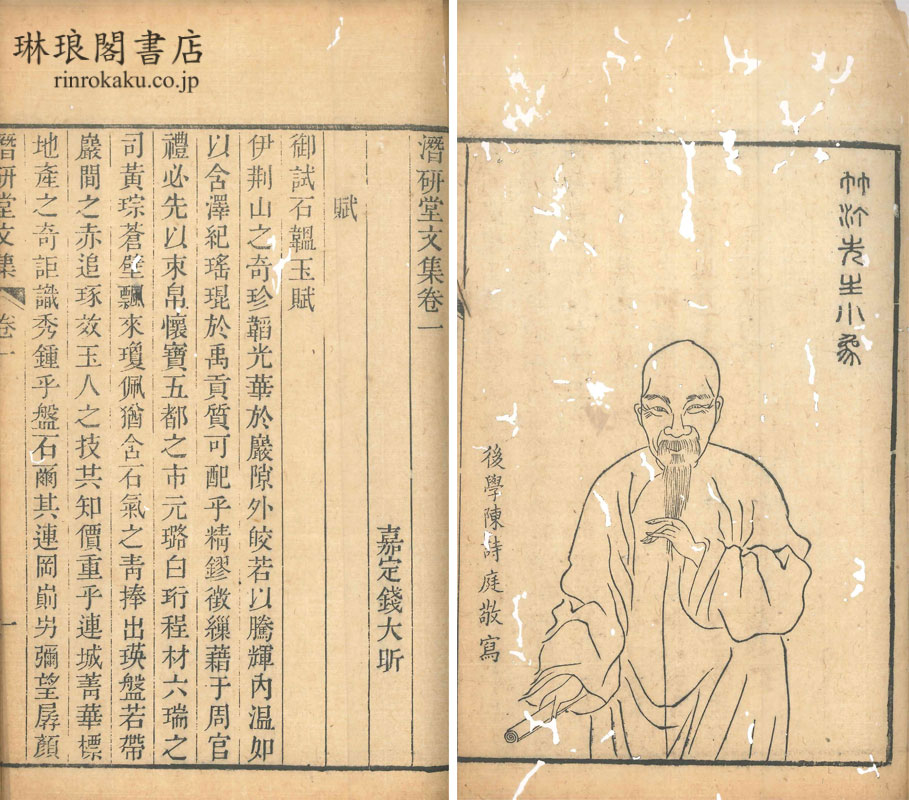 琳琅閣書店
rinrokaku.co.jp
竹汀先生小象
後學陳詩庭敬寫
潛研堂文集卷一
嘉定錢大昕
賦
御試石韞玉賦
伊荆山之奇珍韜光華於巖隙外皎若以騰輝內温如
以含澤紀瑤琨於禹貢質可配乎精鏐徵繅藉于周官
禮必先以束帛懷寶五都之市元璐白珩程材六瑞之
司黃琮蒼璧飄來瓊佩猶含石氣之靑捧出瑛盤若帶
巖間之赤追琢效玉人之技共知價重乎連城菁華標
地產之奇詎識秀鍾乎盤石爾其連岡崱屴彌望孱顏
潛研堂文集 卷一 一